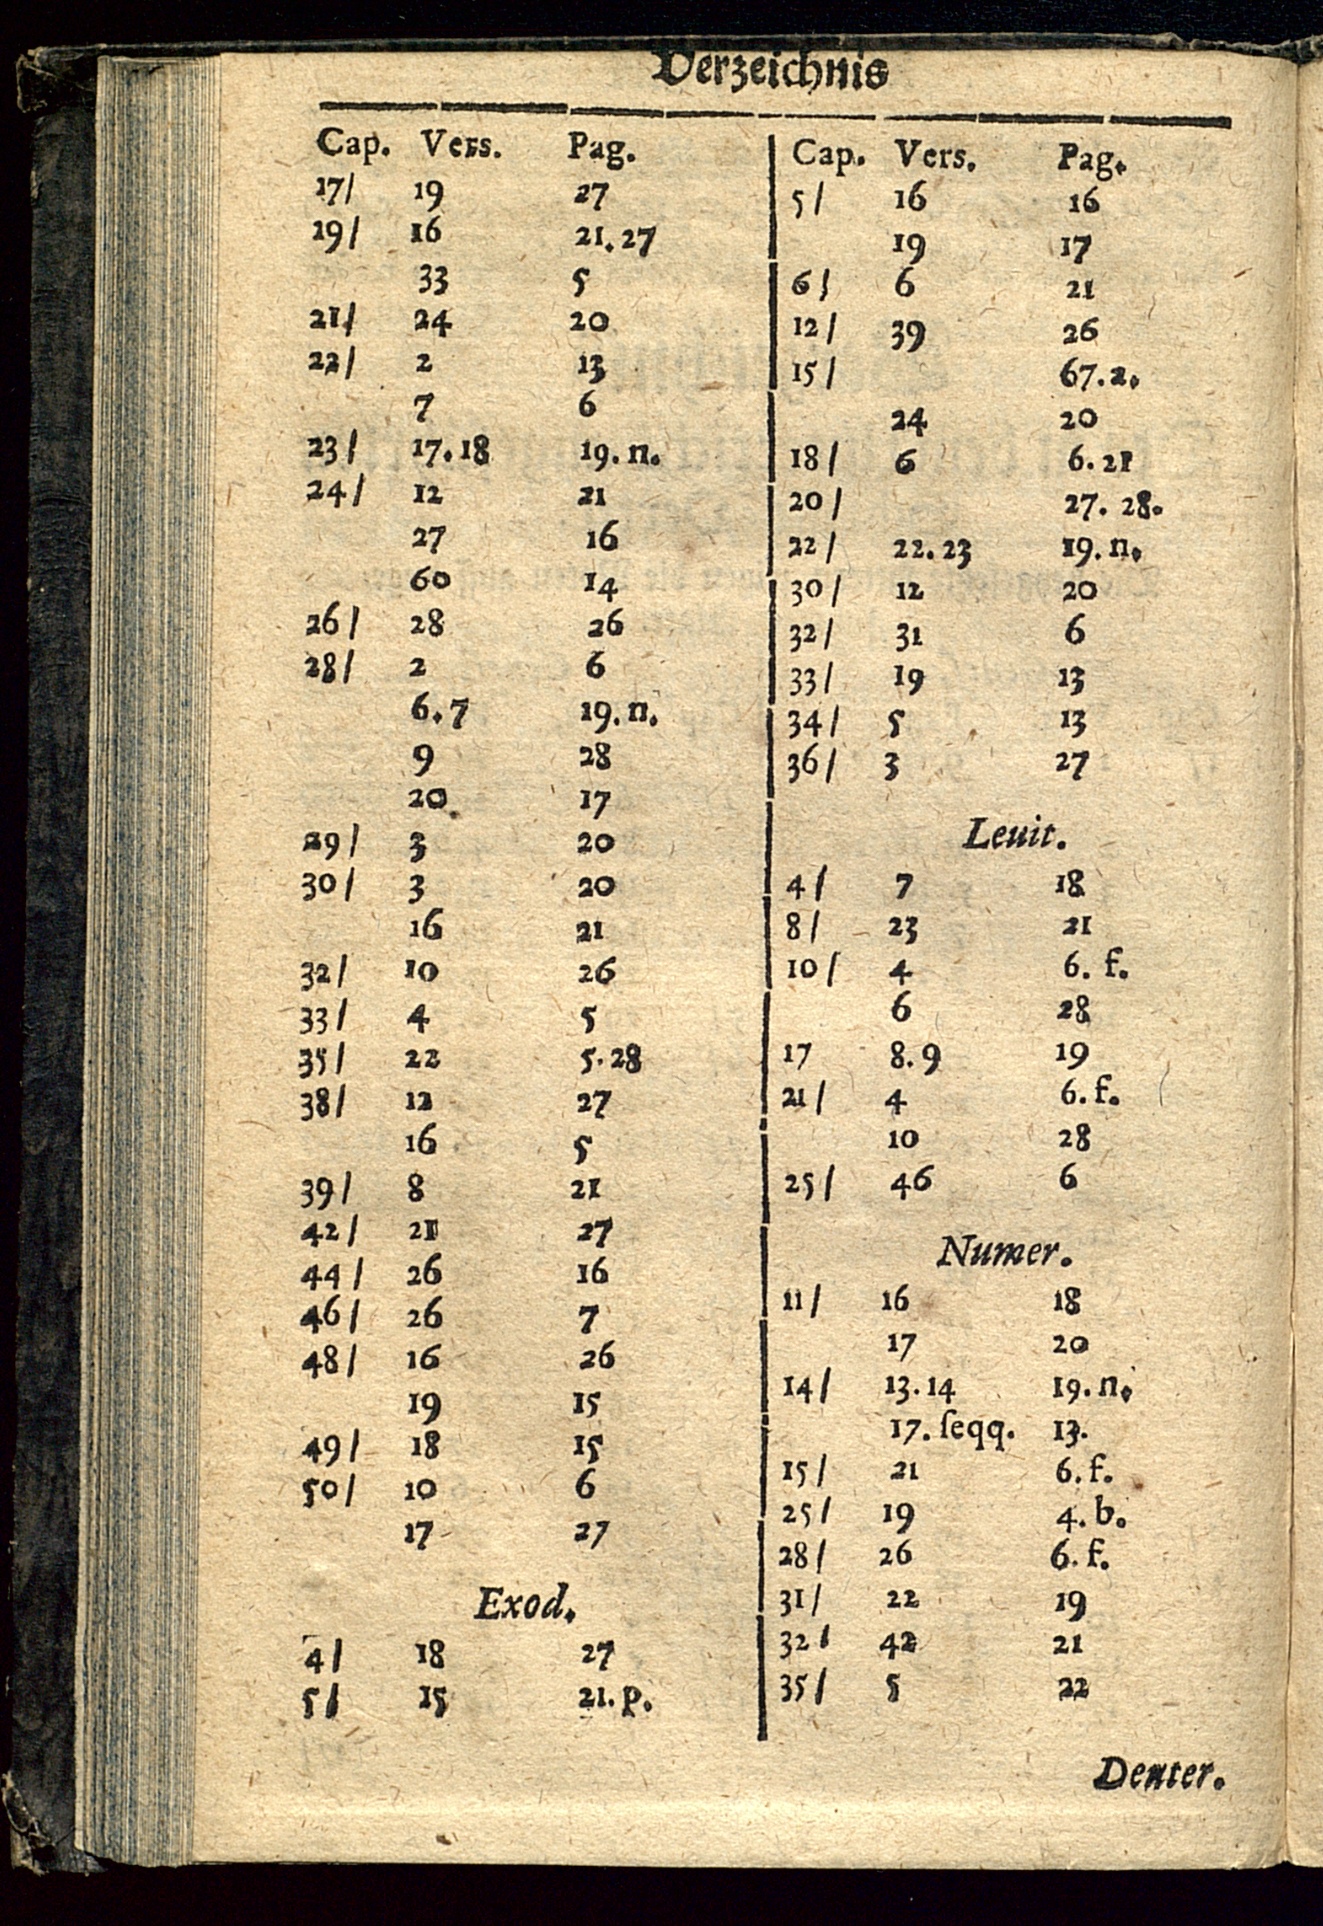 Verzeichnis
Cap. Vers. Pag.
17/ 19 27
19/ 16 21. 27
33 5
21/ 24 20
22/ 2 13
7 6
23/ 17. 18 19. n.
24/ 12 21
27 16
60 14
26/ 28 26
28/ 2 6
6. 7 19. n.
9 28
20 17
29/ 3 20
30/ 3 20
16 21
32/ 10 26
33/ 4 5
35/ 22 5. 28
38/ 12 27
16 5
39/ 8 21
42/ 21 27
44/ 26 16
46/ 26 7
48/ 16 26
19 15
49/ 18 15
50/ 10 6
17 27
Exod.
4/ 18 27
5/ 15 21. p.
Cap. Vers. Pag.
5/ 16 16
19 17
6/ 6 21
12/ 39 26
15/ 67. a.
24 20
18/ 6 6. 21
20/ 27. 28.
22/ 22. 23 19. n.
30/ 12 20
32/ 31 6
33/ 19 13
34/ 5 13
36/ 3 27
Leuit.
4/ 7 18
8/ 23 21
10/ 4 6. f.
6 28
17 8. 9 19
21/ 4 6. f.
10 28
25/ 46 6
Numer.
11/ 16 18
17 20
14/ 13. 14 19. n.
17. ſeqq. 13.
15/ 21 6. f.
25/ 19 4. b.
28/ 26 6. f.
31/ 22 19
32/ 42 21
35/ 5 22
Deuter.